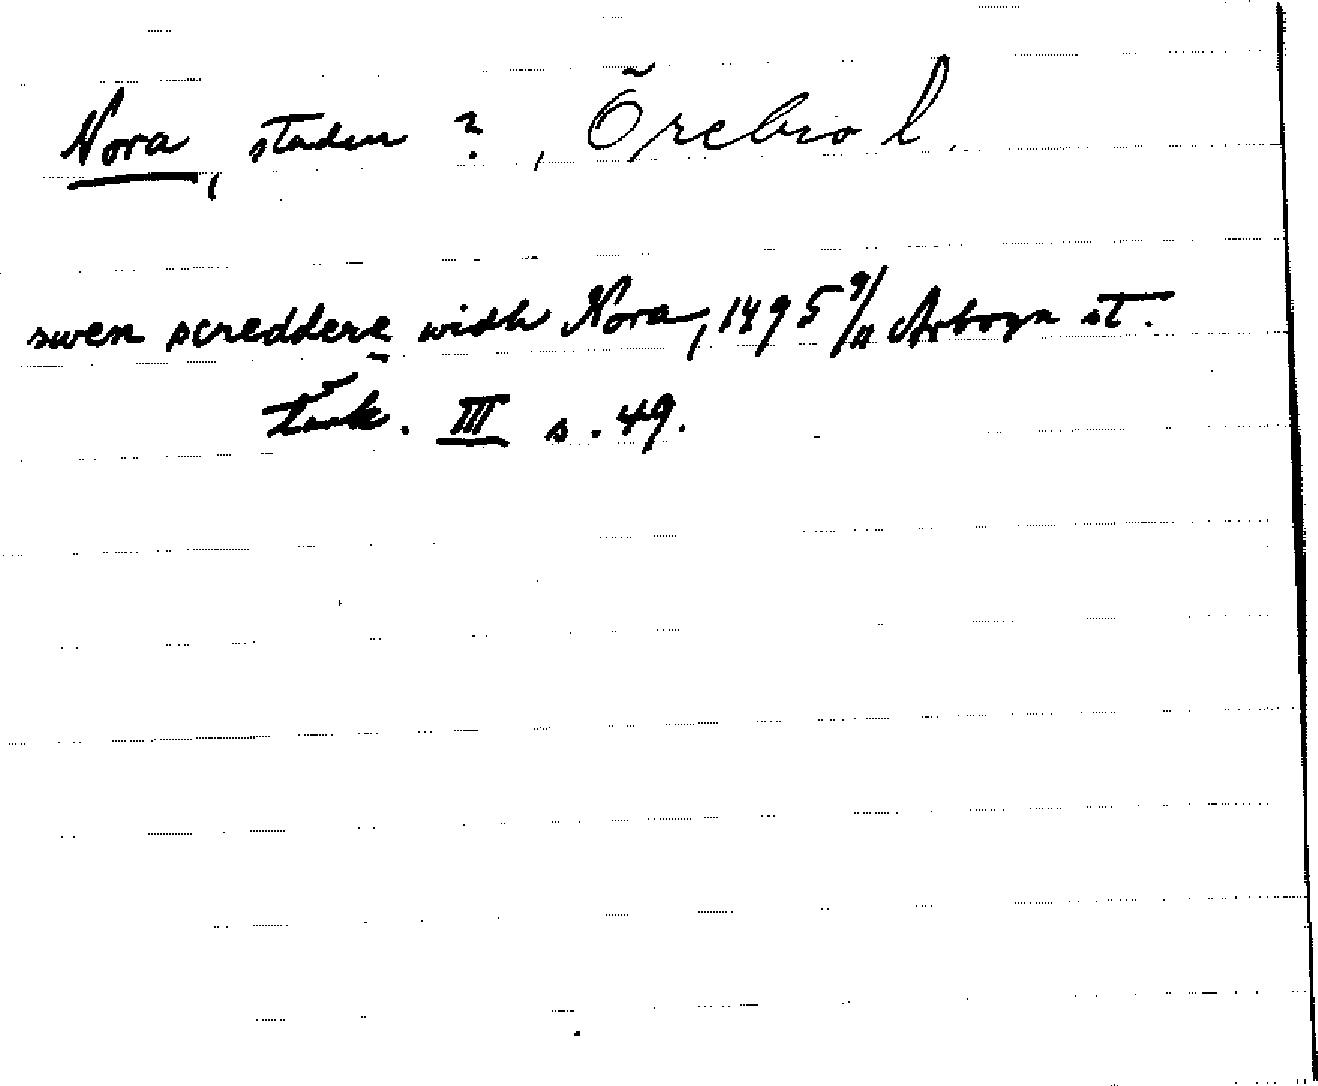 Nora, staden ?, Örebro l.
swen screddere widh Nora, 1495 9/11 Arboga st.
tänk. III s. 49.